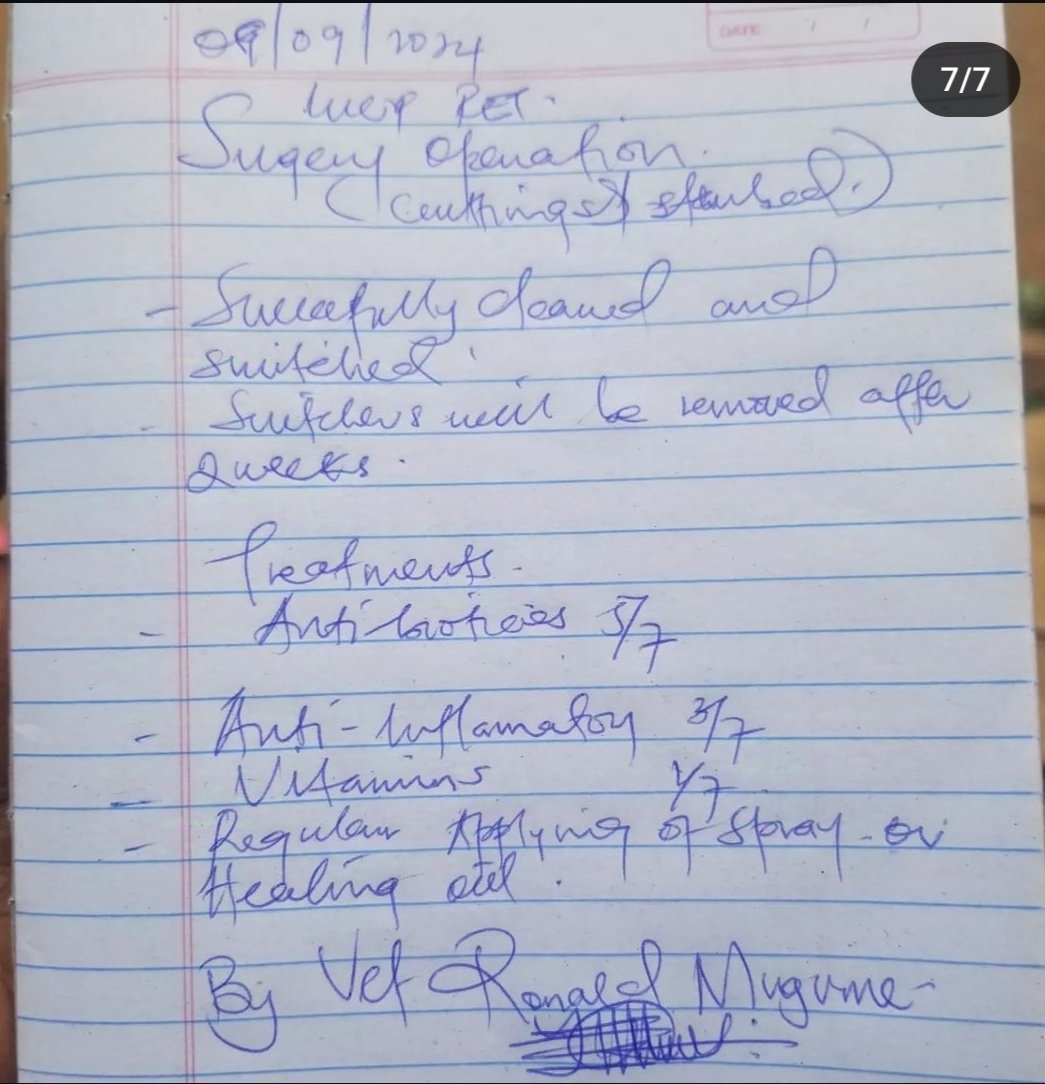 DATE / /
7/7
09/09/2024
PET.
Sugery Operation.
(Cutthings & stabed.)
- Succefully cleaned and
switched.
- Switchers will be removed after
2 weeks.
Treatments.
- Anti-biotices 5/7
- Anti-Inflamatory 3/7
- Vitamins 1/7
- Regular Applying of Spray or
Healing oil.
By Vet Ronald Mugume